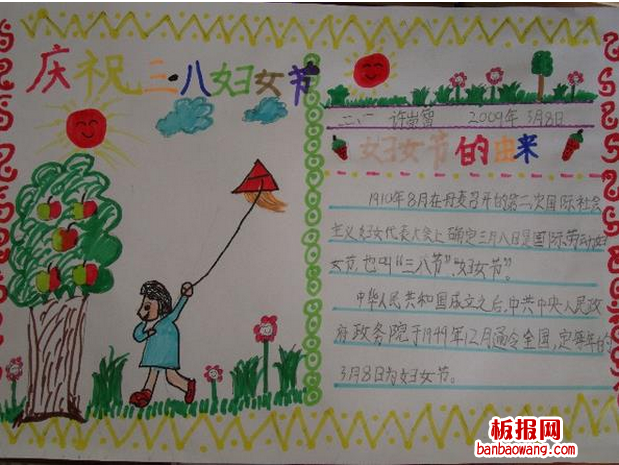 庆祝三·八妇女节
二、一 许崇曾 2009年3月8日
妇女节的由来
1910年8月在丹麦召开的第二次国际社会
主义妇女代表大会上确定三月八日是国际劳动妇
女节,也叫“三八节”“妇女节”。
中华人民共和国成立之后,中共中央人民政
府政务院于1949年12月通令全国,定每年的
3月8日为妇女节。
板报网
banbaowang.com